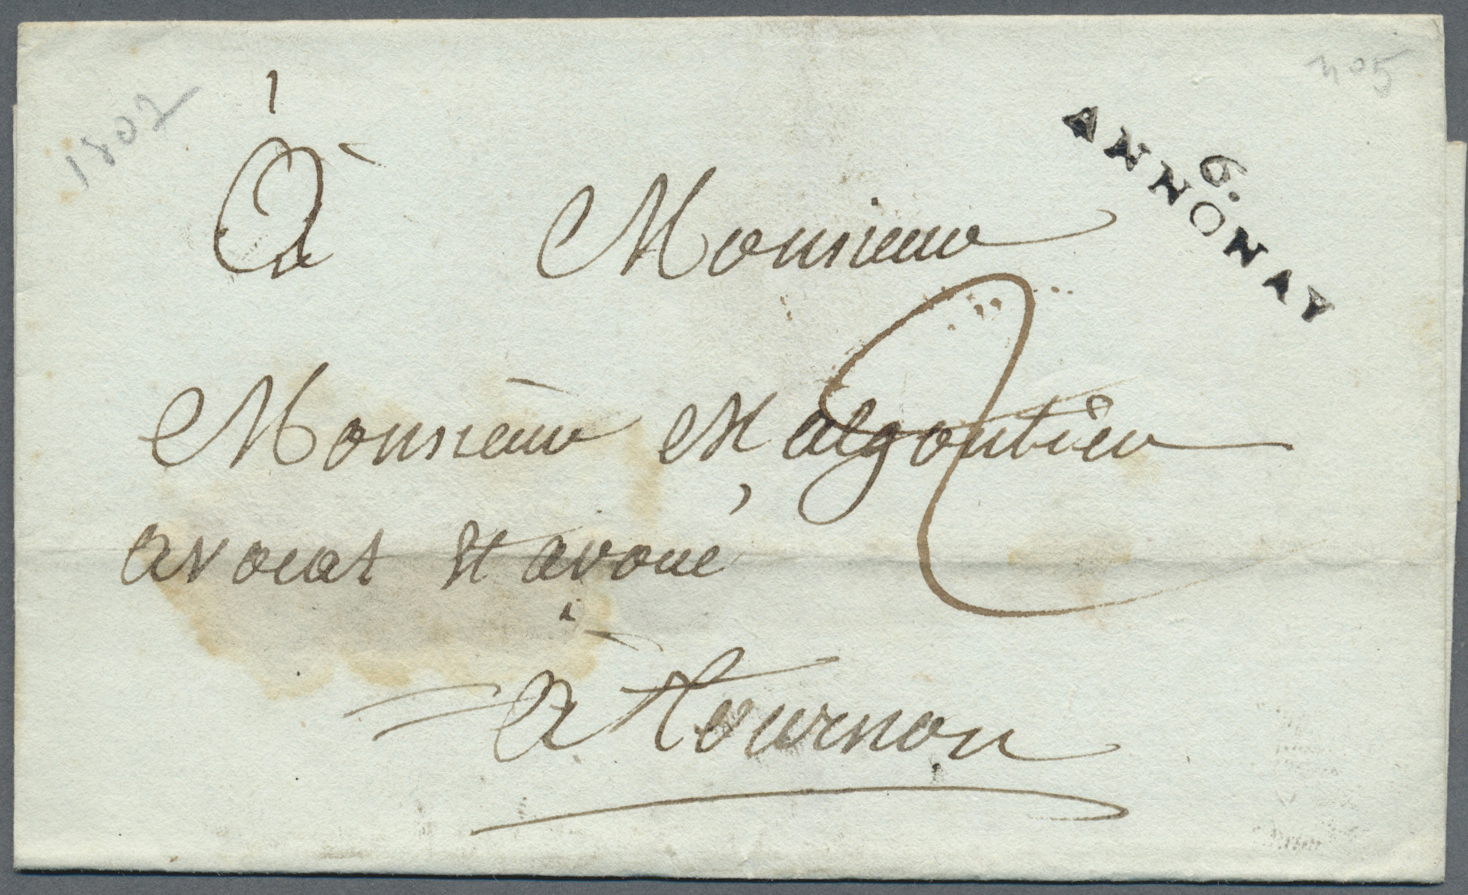 1802
n° 5
6.
ANNONAY
À Monsieur
2
Monsieur Malgontier
avocat et avoué
à tournon